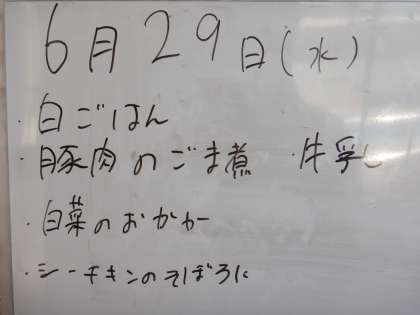 6月29日(水)
・白ごはん
・豚肉のごま煮 ・牛乳
・白菜のおかか
・シーチキンのそぼろに